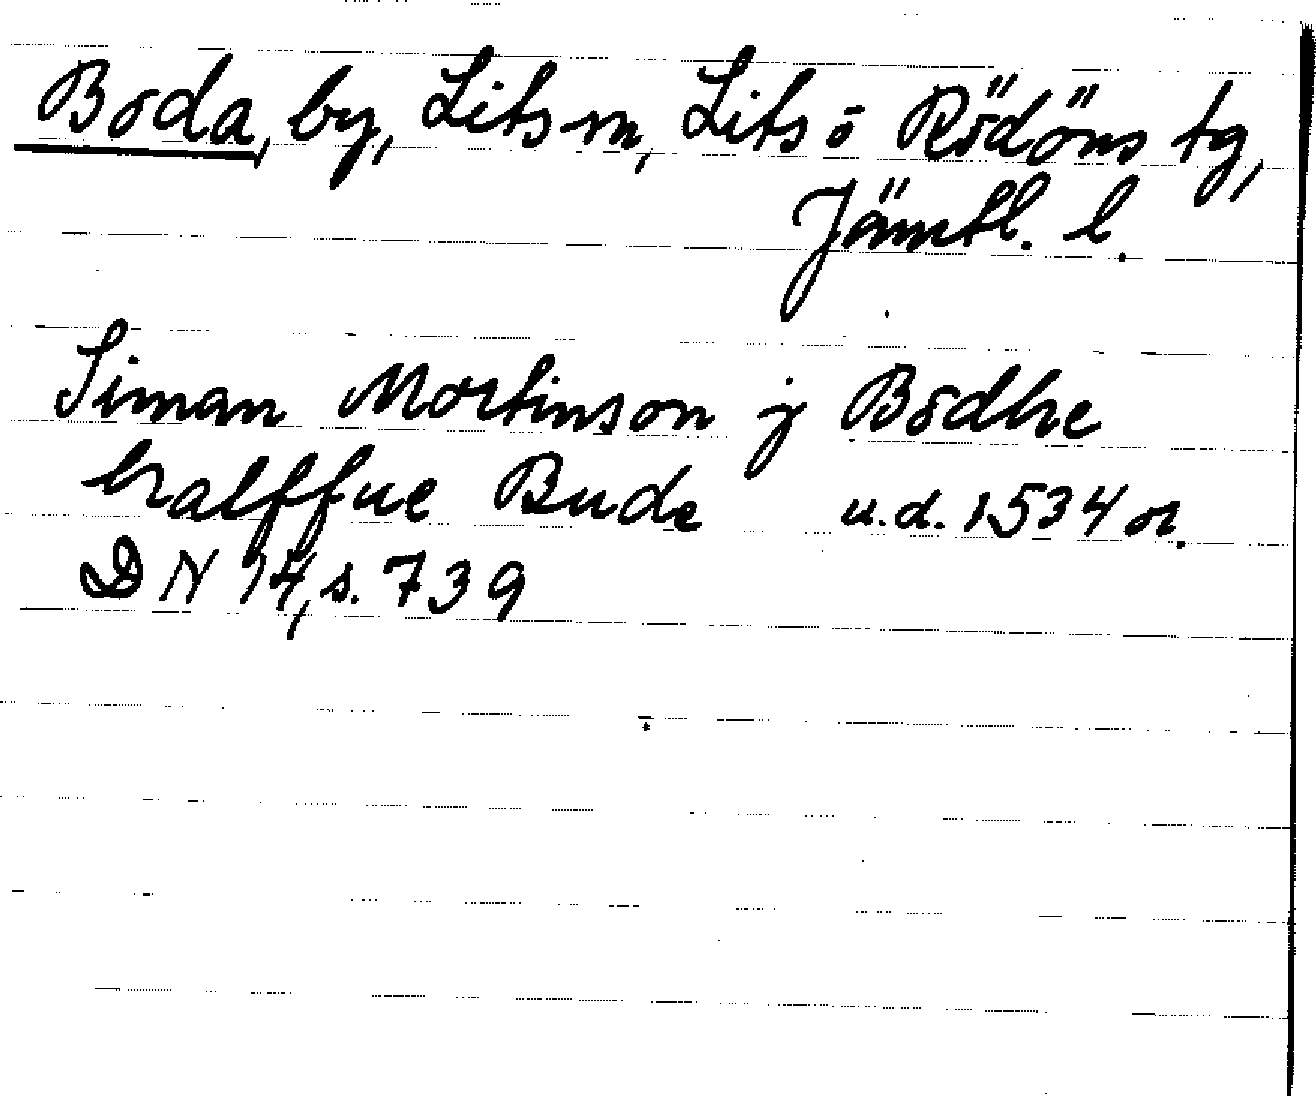 Boda, by, Lits sn, Lits o Rödöns tg,
Jämtl. l.
Siman Mortinson j Bodhe
halffue Bude u.d. 1534 or.
DN 14, s. 739